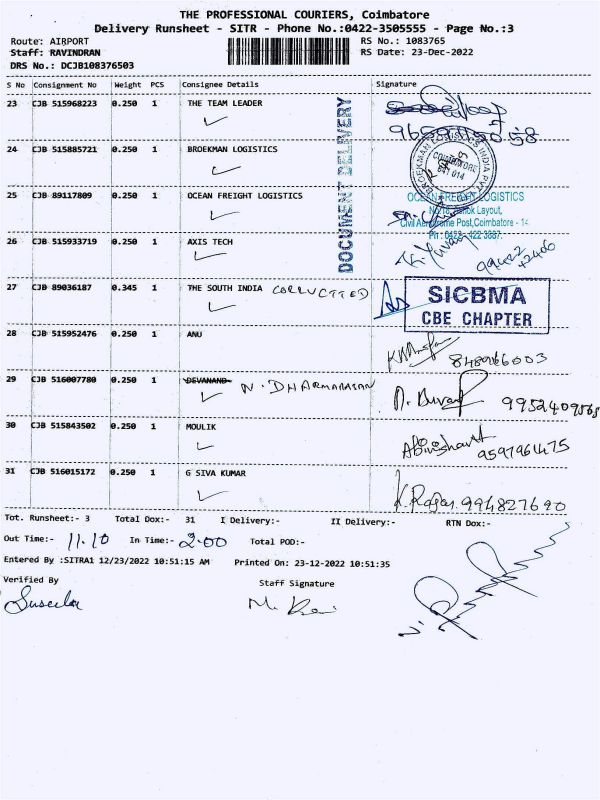 THE PROFESSIONAL COURIERS, Coimbatore
Delivery Runsheet - SITR - Phone No.:0422-3505555 - Page No.:3
Route: AIRPORT RS No.: 1083765
Staff: RAVINDRAN RS Date: 23-Dec-2022
DRS No.: DCJB108376503
S No Consignment No Weight PCS Consignee Details Signature
23 CJB 515968223 0.250 1 THE TEAM LEADER
DOCUMENT DELIVERY
24 CJB 515885721 0.250 1 BROEKMAN LOGISTICS
BROEKMAN LOGISTICS INDIA PVT
COIMBATORE
641 014
25 CJB 89117809 0.250 1 OCEAN FREIGHT LOGISTICS
OCEAN FREIGHT LOGISTICS
Layout,
Civil Aerodrome Post, Coimbatore - 14
Ph : 0422-
26 CJB 515933719 0.250 1 AXIS TECH
99422
42400
27 CJB 89036187 0.345 1 THE SOUTH INDIA CORRUCTTED
SICBMA
CBE CHAPTER
28 CJB 515952476 0.250 1 ANU
848966003
29 CJB 516007780 0.250 1 DEVANAND N. DHARMARASAN
9952409565
30 CJB 515843502 0.250 1 MOULIK
Abinishant 9597961475
31 CJB 516015172 0.250 1 G SIVA KUMAR
K. Rajar. 994827690
Tot. Runsheet:- 3 Total Dox:- 31 I Delivery:- II Delivery:- RTN Dox:-
Out Time:- 11.10 In Time:- 2.00 Total POD:-
Entered By :SITRA1 12/23/2022 10:51:15 AM Printed On: 23-12-2022 10:51:35
Verified By Staff Signature